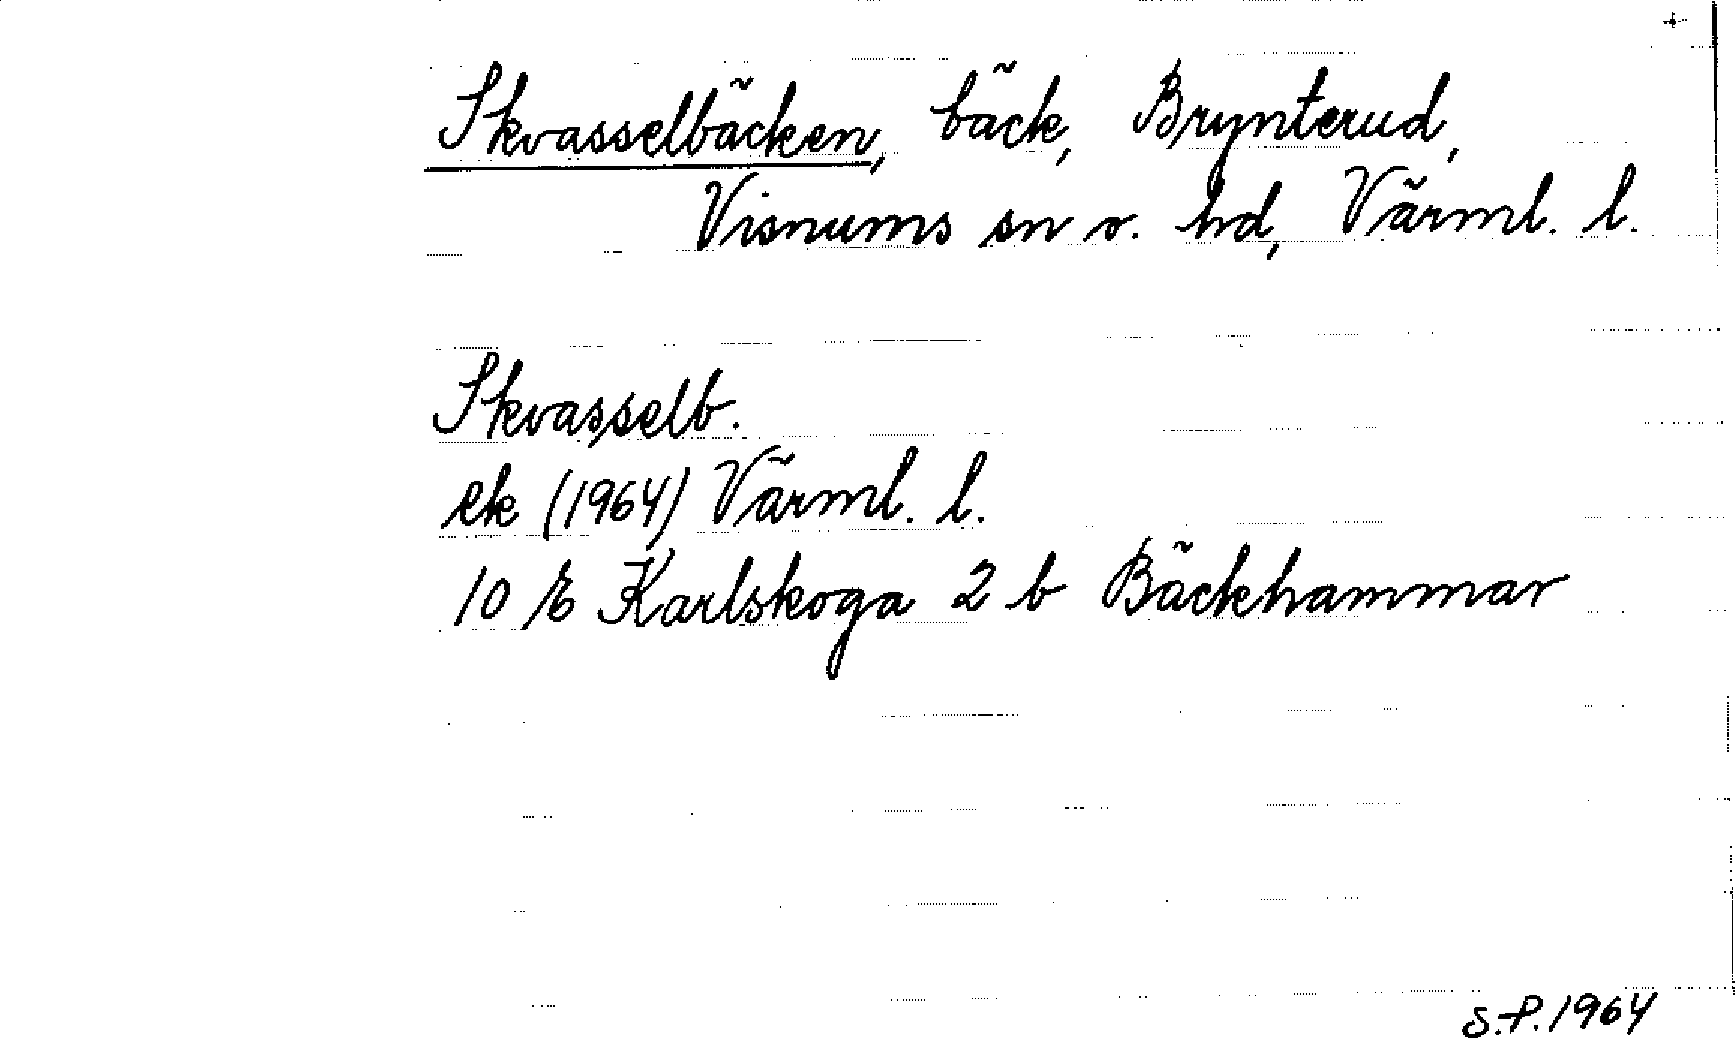 +
Skvasselbäcken, bäck, Brynterud,
Visnums sn o. hd, Värml. l.
Skvasselb.
ek (1964) Värml. l.
10 E Karlskoga 2 b Bäckhammar
S.P. 1964